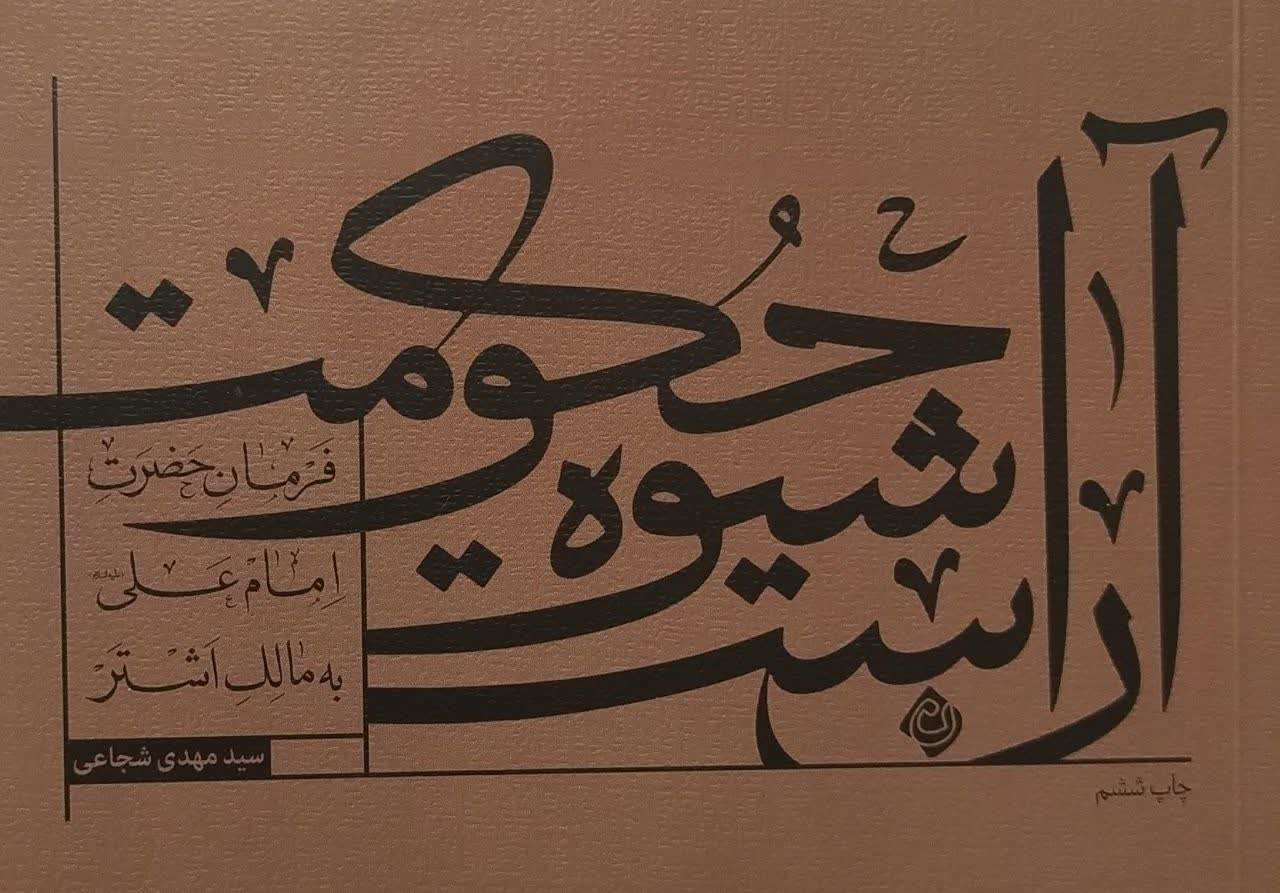 آراست
شیوه
حکومت
فَرْمانِ حَضرَتِ
اِمام عَلی (علیه‌السلام)
به مالِکِ اَشْتَرْ
سید مهدی شجاعی
چاپ ششم